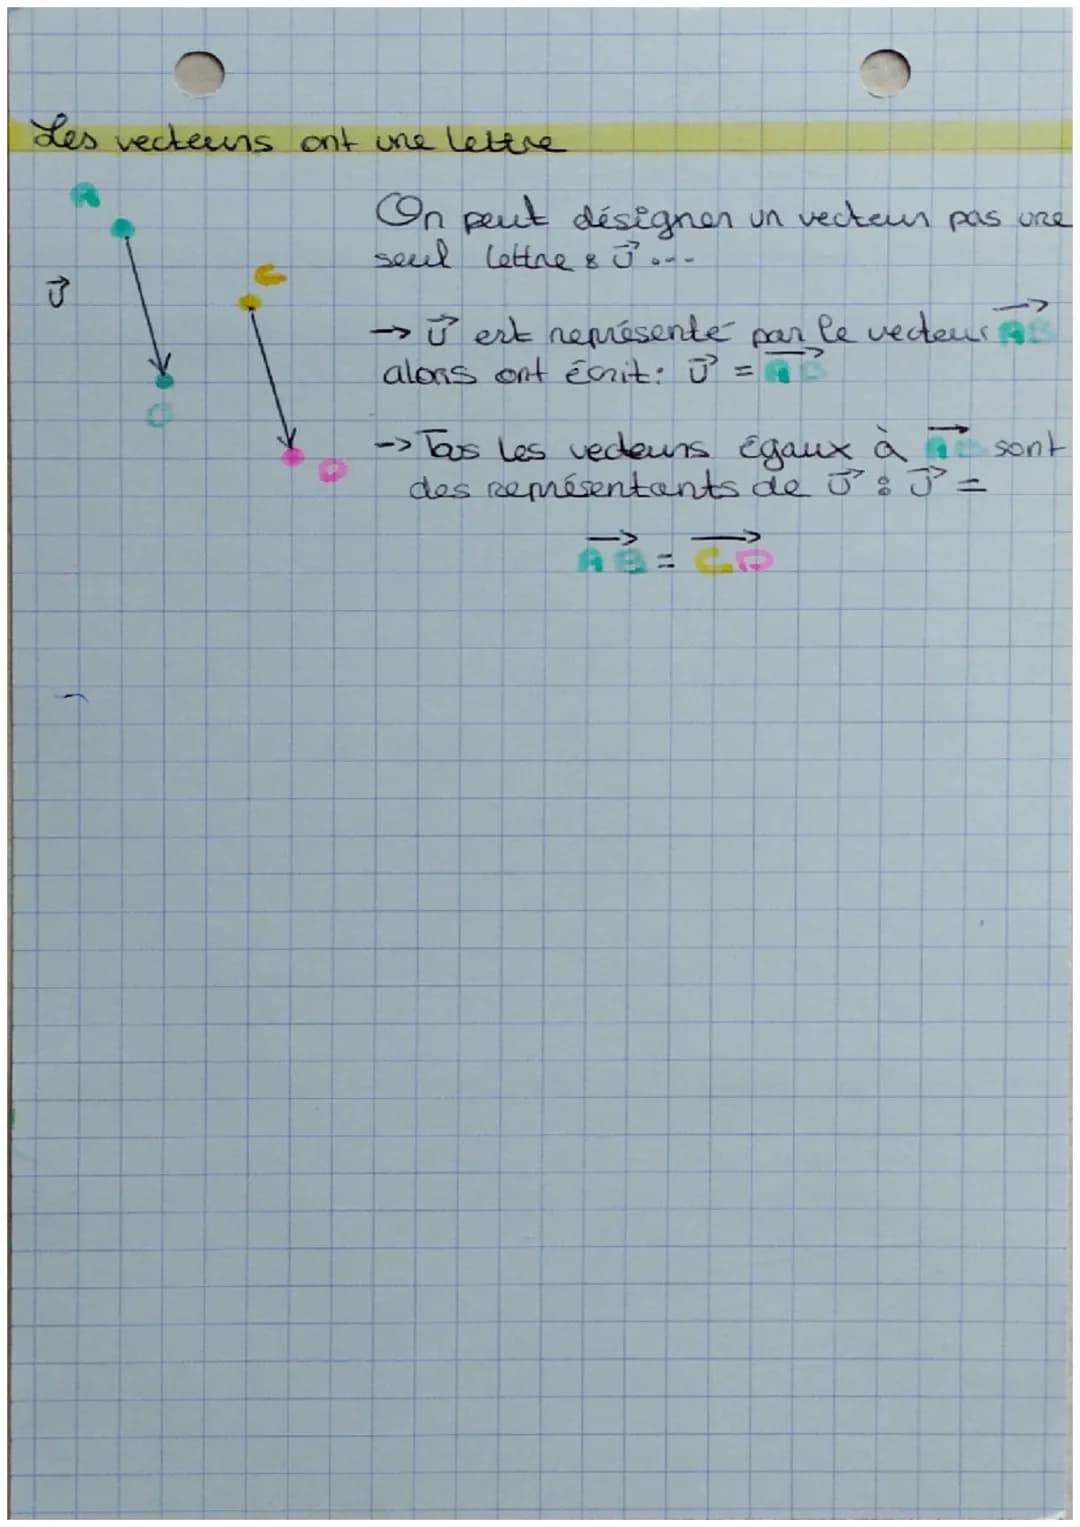 Les vecteurs ont une lettre
A
On peut désigner un vecteur pas une
seul lettre : U⃗ ...
C
U⃗
→ U⃗ est représenté par le vecteur A͞B⃗
alors ont écrit: U⃗ = A͞B⃗
B
→ Tous les vecteurs égaux à A͞B⃗ sont
D
des représentants de U⃗ : U⃗ =
A͞B⃗ = C͞D⃗